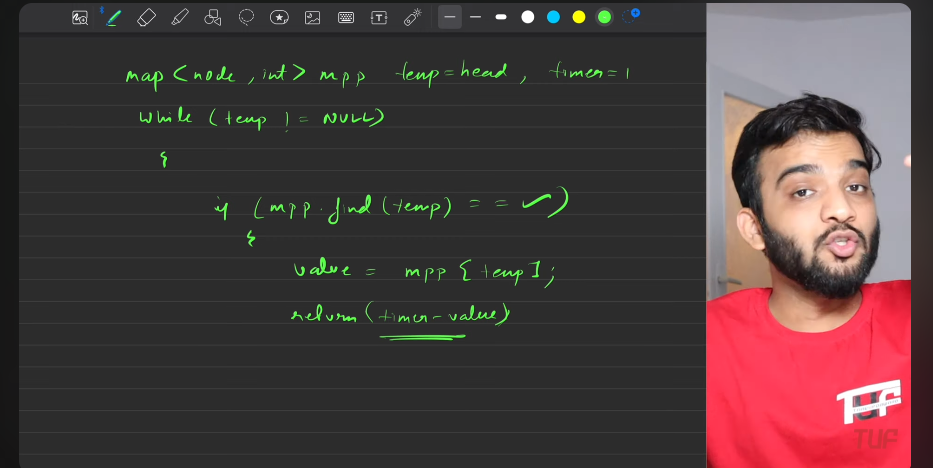 map <node, int> mpp temp=head, timer=1
while (temp != NULL)
{
if (mpp.find(temp) == ✓)
{
value = mpp[temp];
return(timer-value)
TUF
TUF